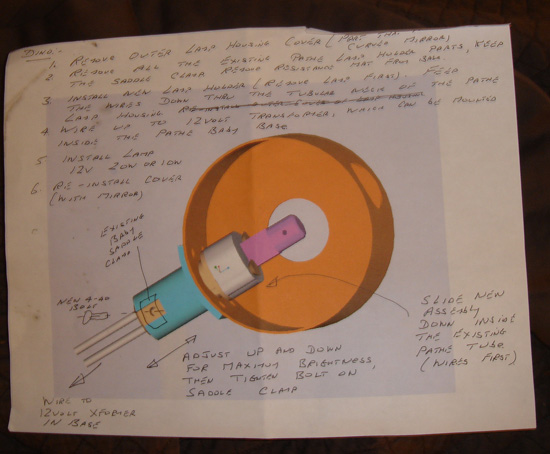 DINO:-
1. REMOVE OUTER LAMP HOUSING COVER (PART
CURVED MIRROR)
2. REMOVE ALL THE EXISTING PATHE LAMP HOLDER PARTS, KEEP
THE SADDLE CLAMP REMOVE RESISTANCE MAT FROM BASE
3. INSTALL NEW LAMP HOLDER (REMOVE LAMP FIRST). FEED
THE WIRES DOWN THRU THE TUBULAR NECK OF THE PATHE
LAMP HOUSING
4. WIRE UP TO 12 VOLT TRANSFORMER, WHICH CAN BE MOUNTED
INSIDE THE PATHE BABY BASE
5. INSTALL LAMP
12V 20W OR 10W
6. RE-INSTALL COVER
(WITH MIRROR)
EXISTING
BABY
SADDLE
CLAMP
NEW 4-40
BOLT
SLIDE NEW
ASSEMBLY
DOWN INSIDE
THE EXISTING
PATHE TUBE
(WIRES FIRST)
ADJUST UP AND DOWN
FOR MAXIMUM BRIGHTNESS,
THEN TIGHTEN BOLT ON
SADDLE CLAMP
WIRE TO
12VOLT XFORMER
IN BASE